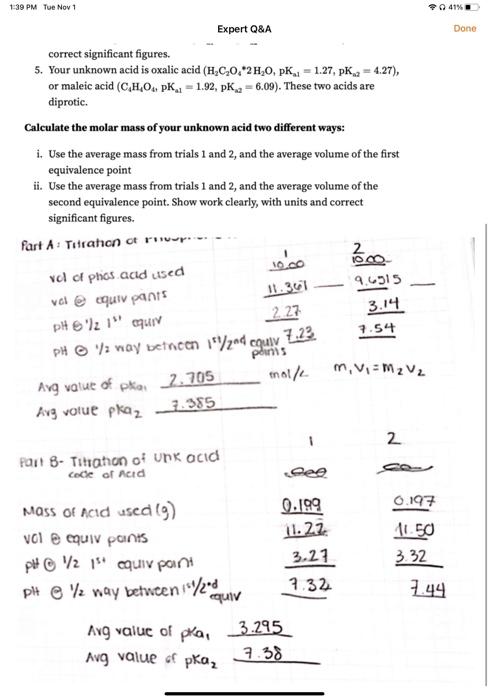 1:39 PM Tue Nov 1
41%
Expert Q&A
Done
correct significant figures.
5. Your unknown acid is oxalic acid (H₂C₂O₄*2 H₂O, pKa1 = 1.27, pKa2 = 4.27),
or maleic acid (C₄H₄O₄, pKa1 = 1.92, pKa2 = 6.09). These two acids are
diprotic.
Calculate the molar mass of your unknown acid two different ways:
i. Use the average mass from trials 1 and 2, and the average volume of the first
equivalence point
ii. Use the average mass from trials 1 and 2, and the average volume of the
second equivalence point. Show work clearly, with units and correct
significant figures.
Part A: Titration of
1 2
vol of phos. acid used 10.00 10.00
vol @ equiv points 11.361 9.6515
pH @ 1/2 1st equiv 2.27 3.14
pH @ 1/2 way between 1st/2nd equiv points 7.23 7.54
Avg value of pka1 2.705 mol/L m₁V₁=m₂V₂
Avg value pka2 7.385
1 2
Part B- Titration of unk acid
code of Acid
Mass of Acid used (g) 0.199 0.197
vol @ equiv points 11.22 11.50
pH @ 1/2 1st equiv point 3.27 3.32
pH @ 1/2 way between 1st/2nd equiv 7.32 7.44
Avg value of pka1 3.295
Avg value of pka2 7.38